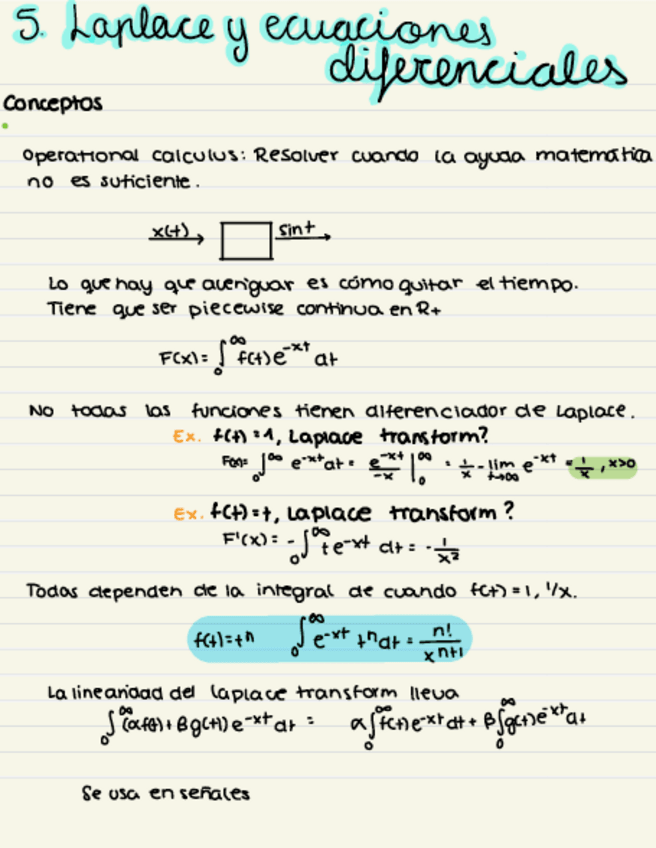 5. Laplace y ecuaciones
diferenciales
Conceptos
Operational calculus: Resolver cuando la ayuda matemática
no es suficiente.
x(t) sint
Lo que hay que averiguar es cómo quitar el tiempo.
Tiene que ser piecewise continua en R+
F(x) = ∫₀^∞ f(t) e^{-xt} dt
No todas las funciones tienen diferenciador de Laplace.
Ex. f(t) = 1, Laplace transform?
F(x) = ∫₀^∞ e^{-xt} dt = e^{-xt}/-x |₀^∞ = 1/x - lim_{t→∞} e^{-xt} = 1/x, x>0
Ex. f(t) = t, Laplace transform?
F'(x) = -∫₀^∞ t e^{-xt} dt = -1/x²
Todas dependen de la integral de cuando f(t) = 1, 1/x.
f(t) = t^n ∫₀^∞ e^{-xt} t^n dt = n!/x^{n+1}
La linearidad del Laplace transform lleva
∫₀^∞ (αf(t) + βg(t)) e^{-xt} dt = α∫₀^∞ f(t) e^{-xt} dt + β∫₀^∞ g(t) e^{-xt} dt
Se usa en señales